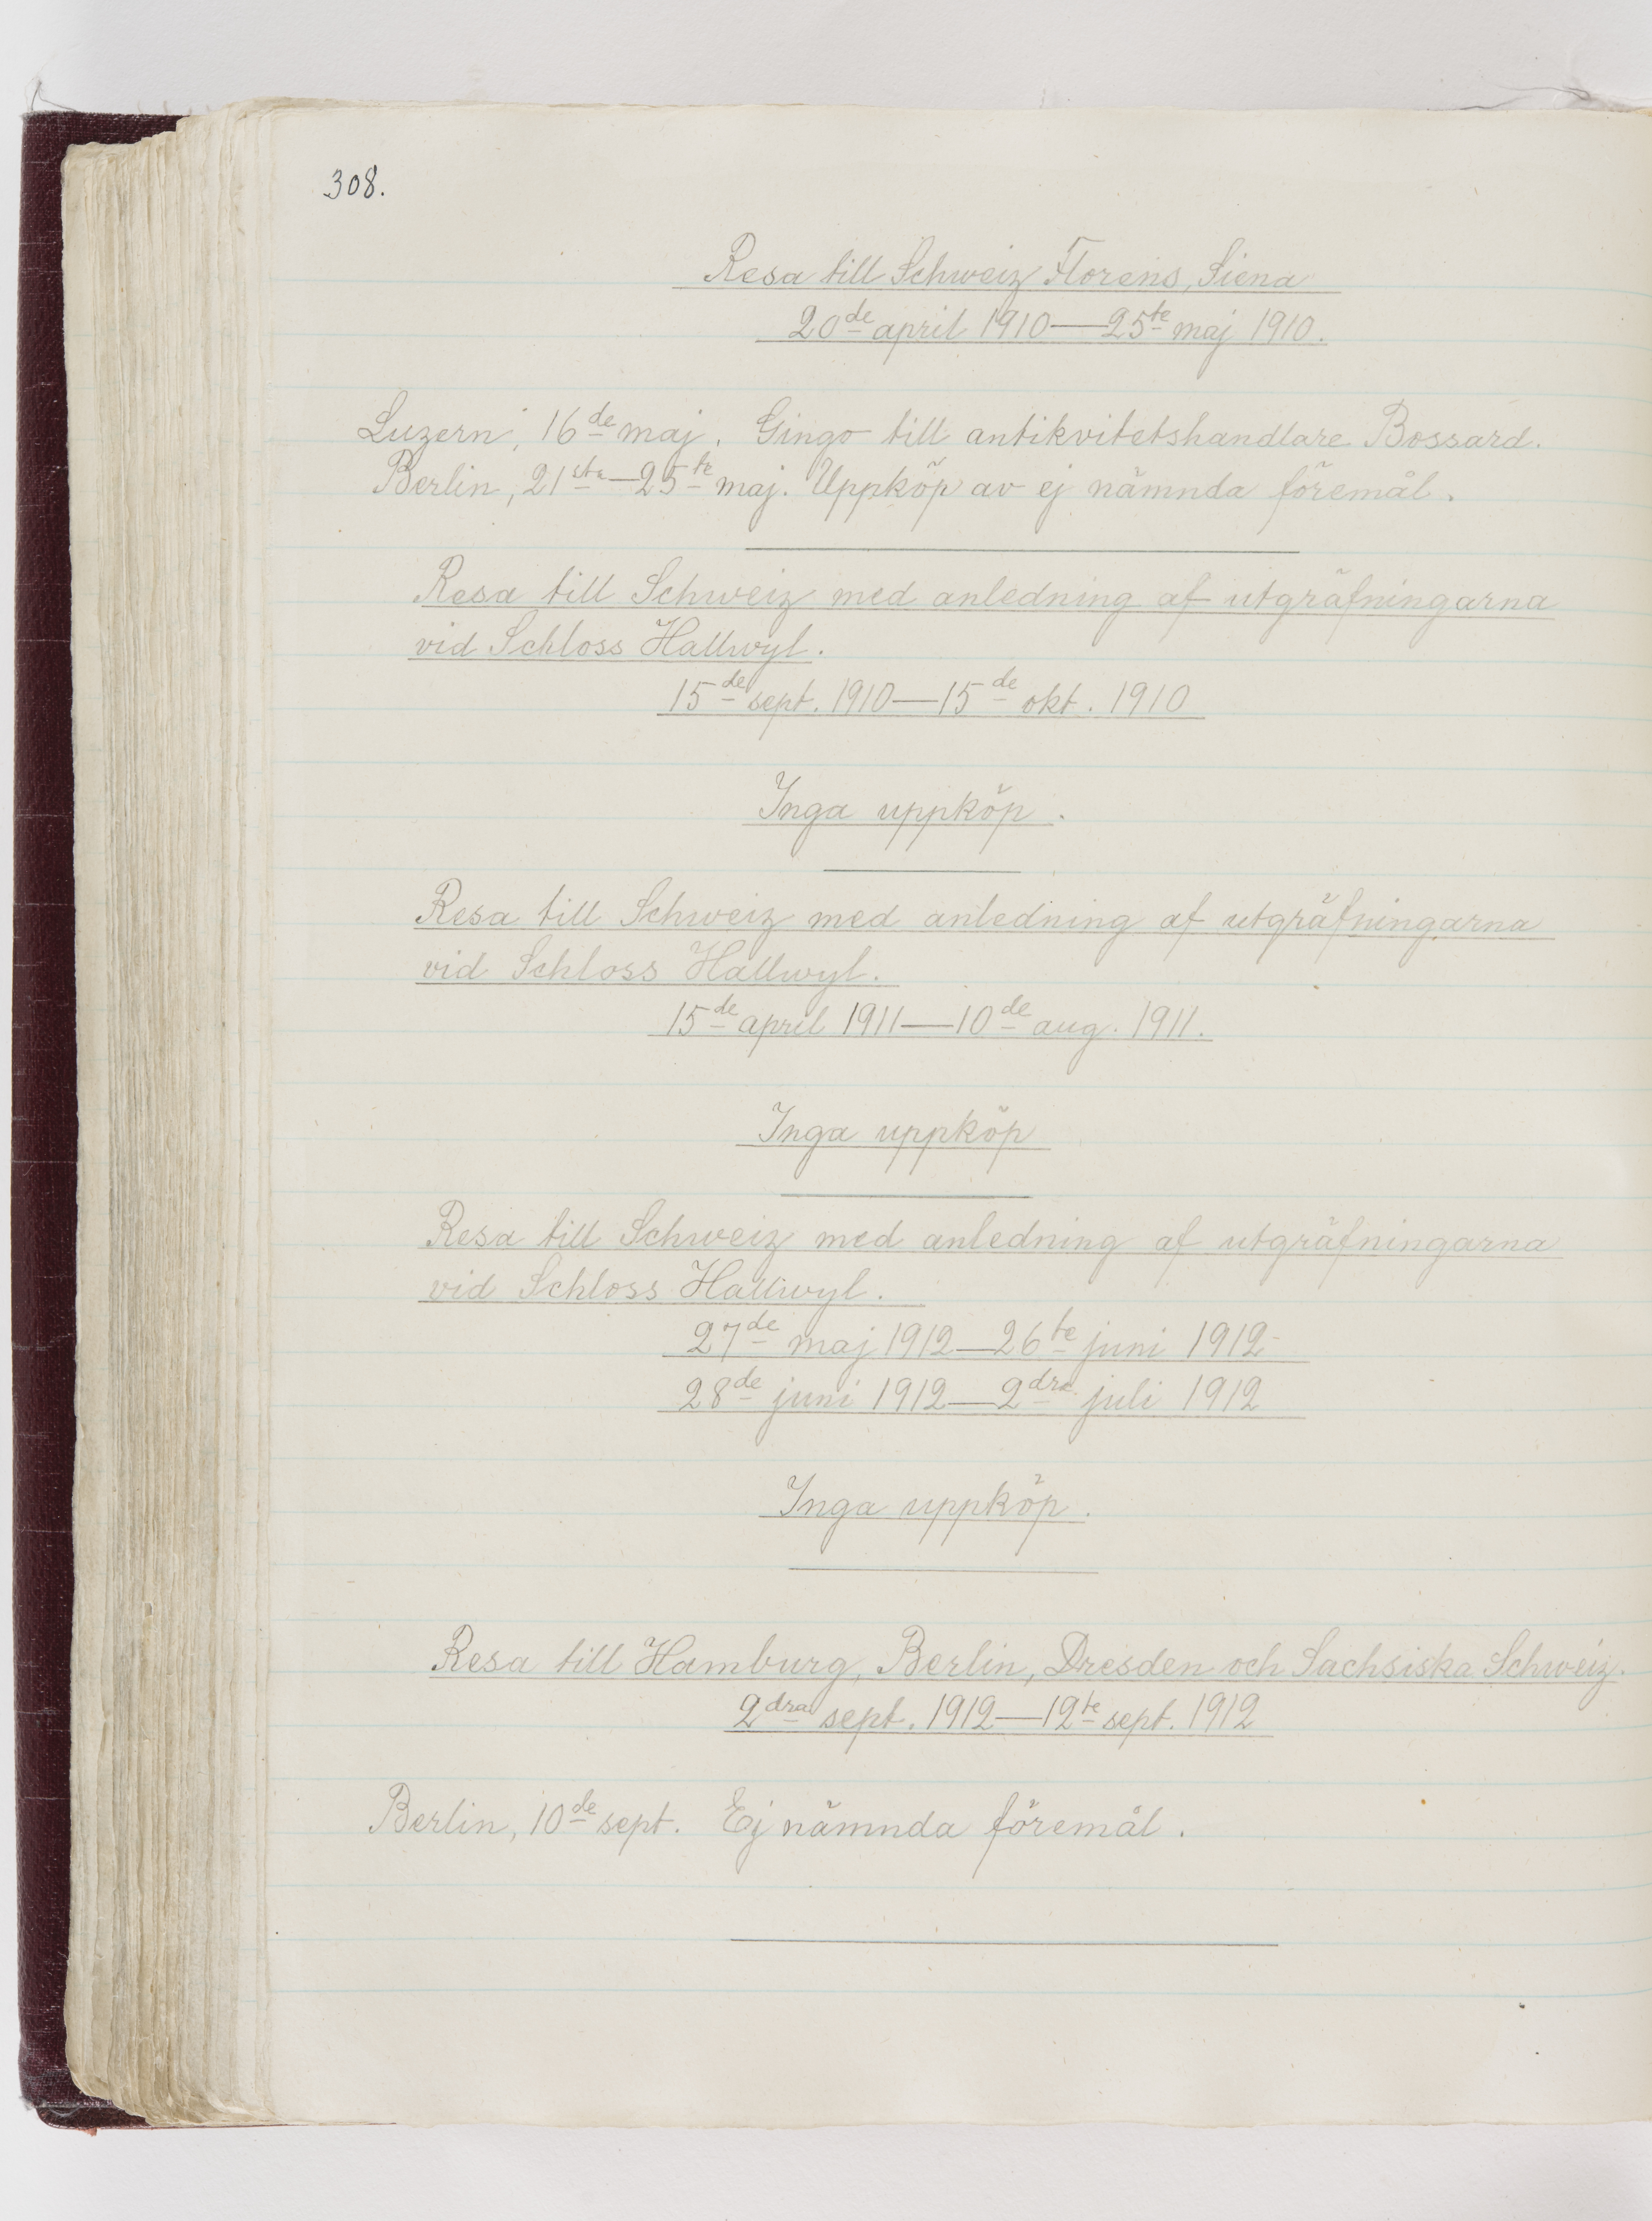 308.
Resa till Schweiz Florens, Siena
20de april 1910—25te maj 1910.
Luzern, 16de maj. Gingo till antikvitetshandlare Bossard.
Berlin, 21sta—25te maj. Uppköp av ej nämnda föremål.
Resa till Schweiz med anledning af utgräfningarna
vid Schloss Hallwyl.
15de sept. 1910—15de okt. 1910
Inga uppköp.
Resa till Schweiz med anledning af utgräfningarna
vid Schloss Hallwyl.
15de april 1911—10de aug. 1911.
Inga uppköp
Resa till Schweiz med anledning af utgräfningarna
vid Schloss Hallwyl.
27de maj 1912—26te juni 1912
28de juni 1912—2dra juli 1912
Inga uppköp.
Resa till Hamburg, Berlin, Dresden och Sachsiska Schweiz.
2dra sept. 1912—12te sept. 1912
Berlin, 10de sept. Ej nämnda föremål.